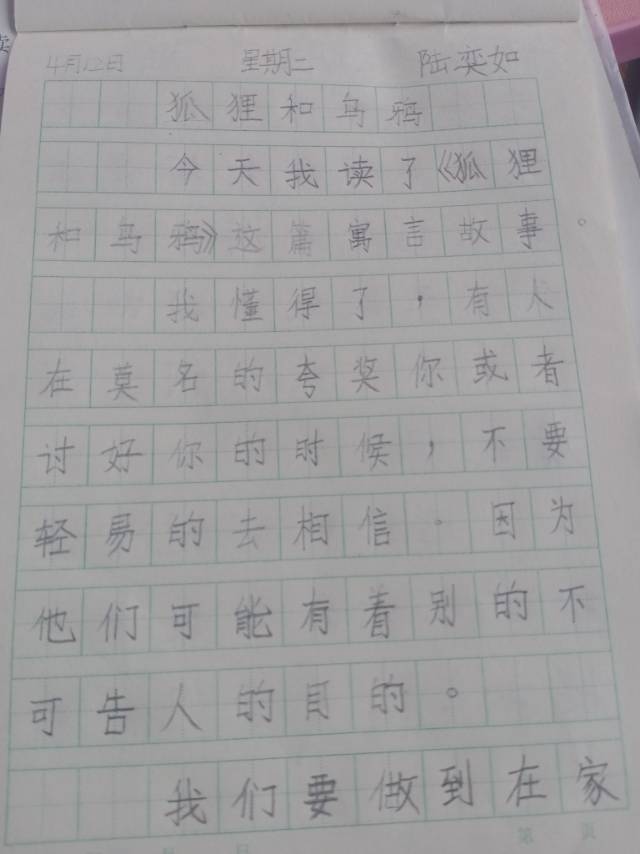 4月12日 星期二 陆奕如
狐狸和乌鸦
今天我读了《狐狸
和乌鸦》这篇寓言故事。
我懂得了，有人
在莫名的夸奖你或者
讨好你的时候，不要
轻易的去相信。因为
他们可能有着别的不
可告人的目的。
我们要做到在家
第 页